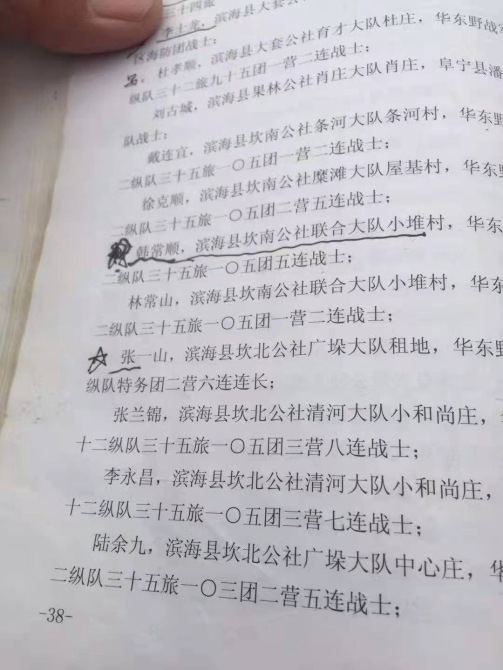 三十四旅
李士龙，滨海县大套公
区海防团战士；
杜孝顺，滨海县大套公社育才大队杜庄，华东野战军
纵队三十二旅九十五团一营二连战士；
刘古城，滨海县果林公社肖庄大队肖庄，阜宁县潘
队战士；
戴连官，滨海县坎南公社条河大队条河村，华东野
二纵队三十五旅一〇五团一营二连战士；
徐克顺，滨海县坎南公社糜滩大队屋基村，华东野
二纵队三十五旅一〇五团二营五连战士；
韩常顺，滨海县坎南公社联合大队小堆村，华东
二纵队三十五旅一〇五团五连战士；
林常山，滨海县坎南公社联合大队小堆村，华东野
二纵队三十五旅一〇五团一营二连战士；
张一山，滨海县坎北公社广垛大队租地，华东
纵队特务团二营六连连长；
张兰锦，滨海县坎北公社清河大队小和尚庄，
十二纵队三十五旅一〇五团三营八连战士；
李永昌，滨海县坎北公社清河大队小和尚庄，
十二纵队三十五旅一〇五团三营七连战士；
陆余九，滨海县坎北公社广垛大队中心庄，华
二纵队三十五旅一〇三团二营五连战士；
-38-